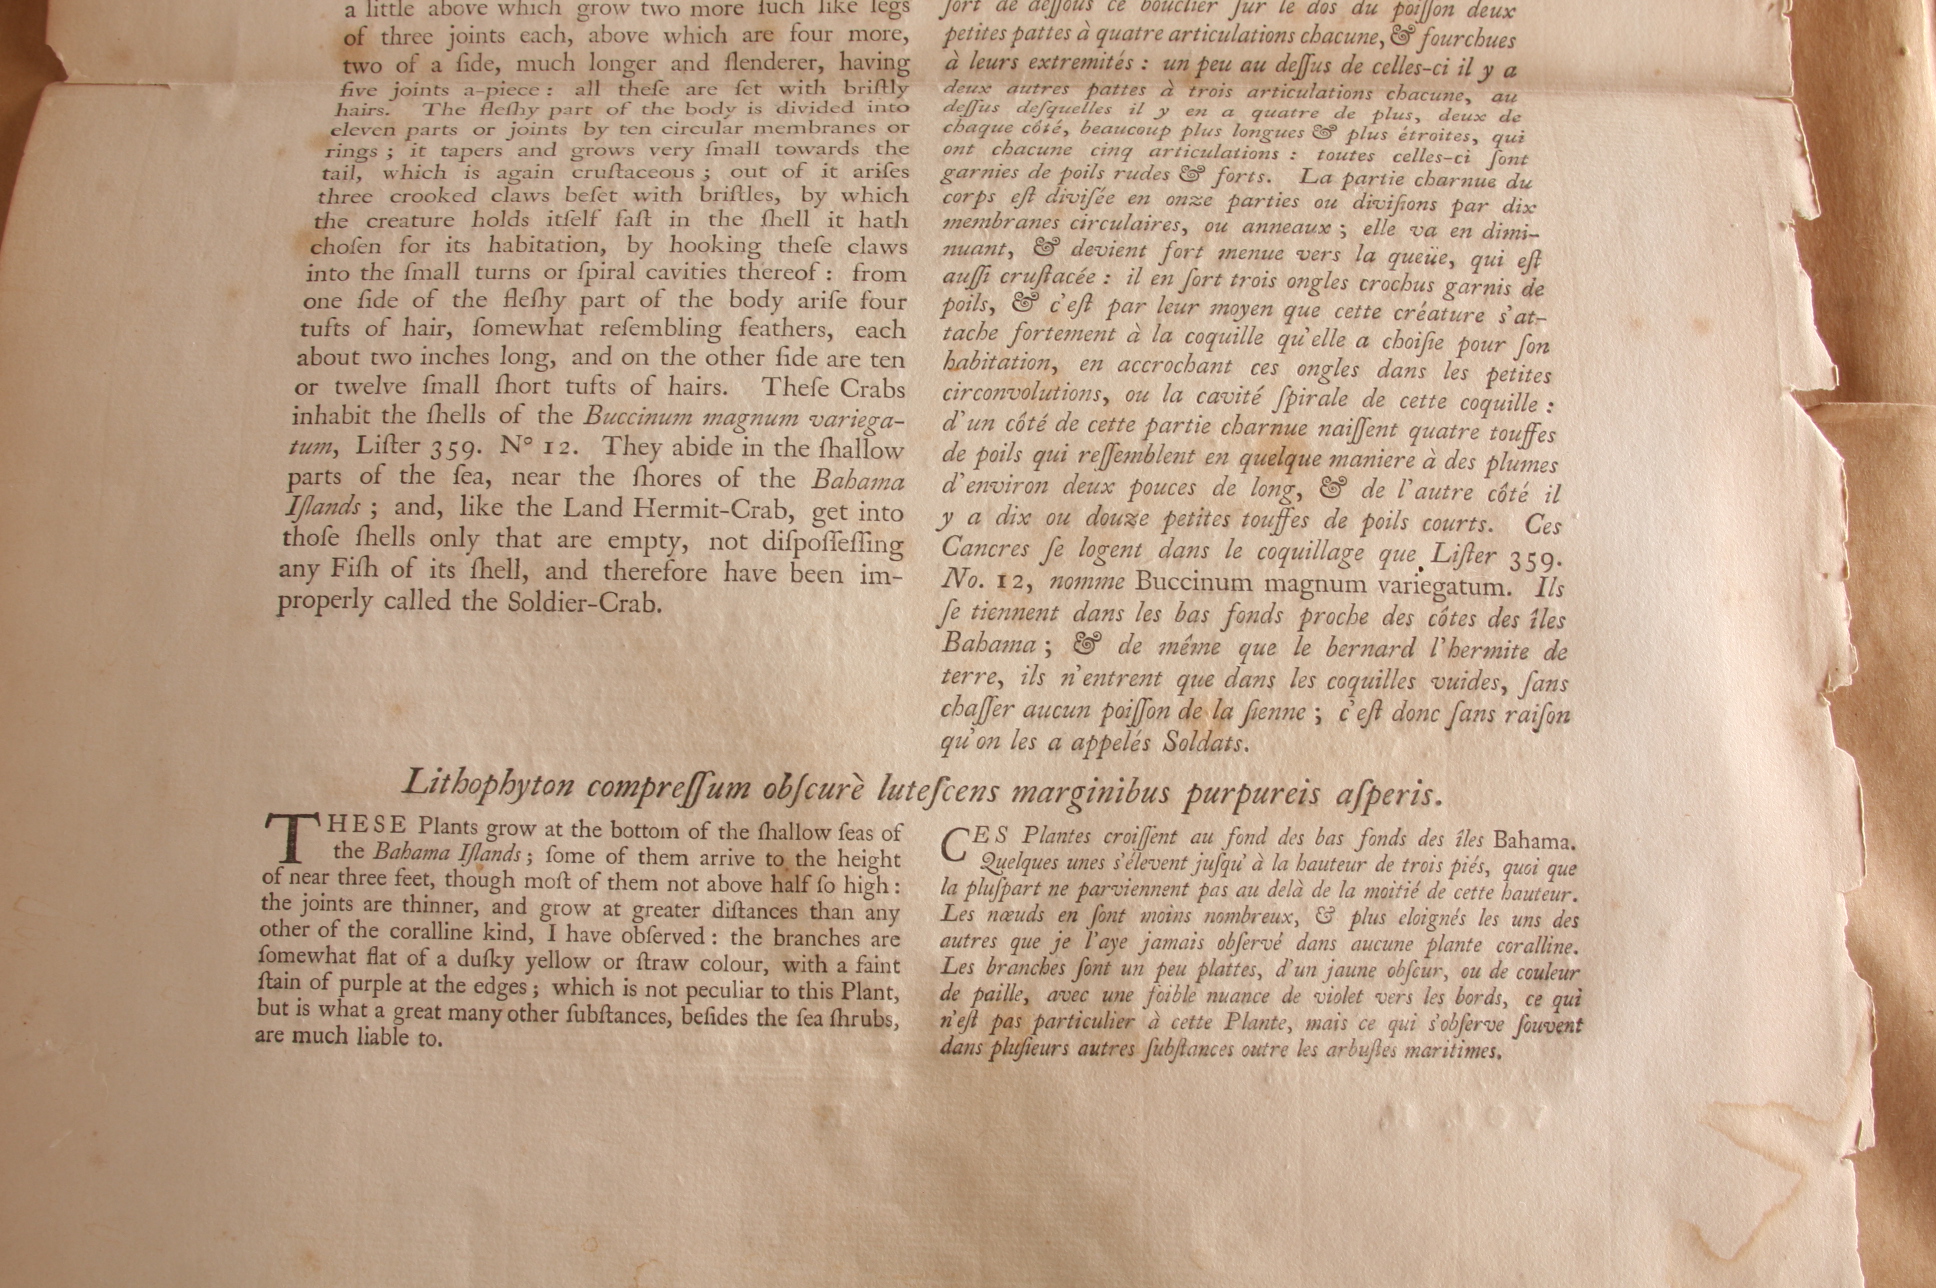 a little above which grow two more ſuch like legs
of three joints each, above which are four more,
two of a ſide, much longer and ſlenderer, having
five joints a-piece : all theſe are ſet with briſtly
hairs. The fleſhy part of the body is divided into
eleven parts or joints by ten circular membranes or
rings ; it tapers and grows very ſmall towards the
tail, which is again cruſtaceous ; out of it ariſes
three crooked claws beſet with briſtles, by which
the creature holds itſelf faſt in the ſhell it hath
choſen for its habitation, by hooking theſe claws
into the ſmall turns or ſpiral cavities thereof : from
one ſide of the fleſhy part of the body ariſe four
tufts of hair, ſomewhat reſembling feathers, each
about two inches long, and on the other ſide are ten
or twelve ſmall ſhort tufts of hairs. Theſe Crabs
inhabit the ſhells of the Buccinum magnum variega-
tum, Liſter 359. N° 12. They abide in the ſhallow
parts of the ſea, near the ſhores of the Bahama
Iſlands ; and, like the Land Hermit-Crab, get into
thoſe ſhells only that are empty, not diſpoſſeſſing
any Fiſh of its ſhell, and therefore have been im-
properly called the Soldier-Crab.
ſort de deſſous ce bouclier ſur le dos du poiſſon deux
petites pattes à quatre articulations chacune, & fourchues
à leurs extremités : un peu au deſſus de celles-ci il y a
deux autres pattes à trois articulations chacune, au
deſſus deſquelles il y en a quatre de plus, deux de
chaque côté, beaucoup plus longues & plus étroites, qui
ont chacune cinq articulations : toutes celles-ci ſont
garnies de poils rudes & forts. La partie charnue du
corps eſt diviſée en onze parties ou diviſions par dix
membranes circulaires, ou anneaux ; elle va en dimi-
nuant, & devient fort menue vers la queüe, qui eſt
auſſi cruſtacée : il en ſort trois ongles crochus garnis de
poils, & c'eſt par leur moyen que cette créature s'at-
tache fortement à la coquille qu'elle a choiſie pour ſon
habitation, en accrochant ces ongles dans les petites
circonvolutions, ou la cavité ſpirale de cette coquille :
d'un côté de cette partie charnue naiſſent quatre touffes
de poils qui reſſemblent en quelque maniere à des plumes
d'environ deux pouces de long, & de l'autre côté il
y a dix ou douze petites touffes de poils courts. Ces
Cancres ſe logent dans le coquillage que Liſter 359.
No. 12, nomme Buccinum magnum variegatum. Ils
ſe tiennent dans les bas fonds proche des côtes des îles
Bahama ; & de même que le bernard l'hermite de
terre, ils n'entrent que dans les coquilles vuides, ſans
chaſſer aucun poiſſon de la ſienne ; c'eſt donc ſans raiſon
qu'on les a appelés Soldats.
Lithophyton compreſſum obſcurè luteſcens marginibus purpureis aſperis.
THESE Plants grow at the bottom of the ſhallow ſeas of
the Bahama Iſlands ; ſome of them arrive to the height
of near three feet, though moſt of them not above half ſo high :
the joints are thinner, and grow at greater diſtances than any
other of the coralline kind, I have obſerved : the branches are
ſomewhat flat of a duſky yellow or ſtraw colour, with a faint
ſtain of purple at the edges ; which is not peculiar to this Plant,
but is what a great many other ſubſtances, beſides the ſea ſhrubs,
are much liable to.
CES Plantes croiſſent au fond des bas fonds des îles Bahama.
Quelques unes s'élevent juſqu' à la hauteur de trois piés, quoi que
la pluſpart ne parviennent pas au delà de la moitié de cette hauteur.
Les nœuds en ſont moins nombreux, & plus eloignés les uns des
autres que je l'aye jamais obſervé dans aucune plante coralline.
Les branches ſont un peu plattes, d'un jaune obſcur, ou de couleur
de paille, avec une foible nuance de violet vers les bords, ce qui
n'eſt pas particulier à cette Plante, mais ce qui s'obſerve ſouvent
dans pluſieurs autres ſubſtances outre les arbuſtes maritimes.